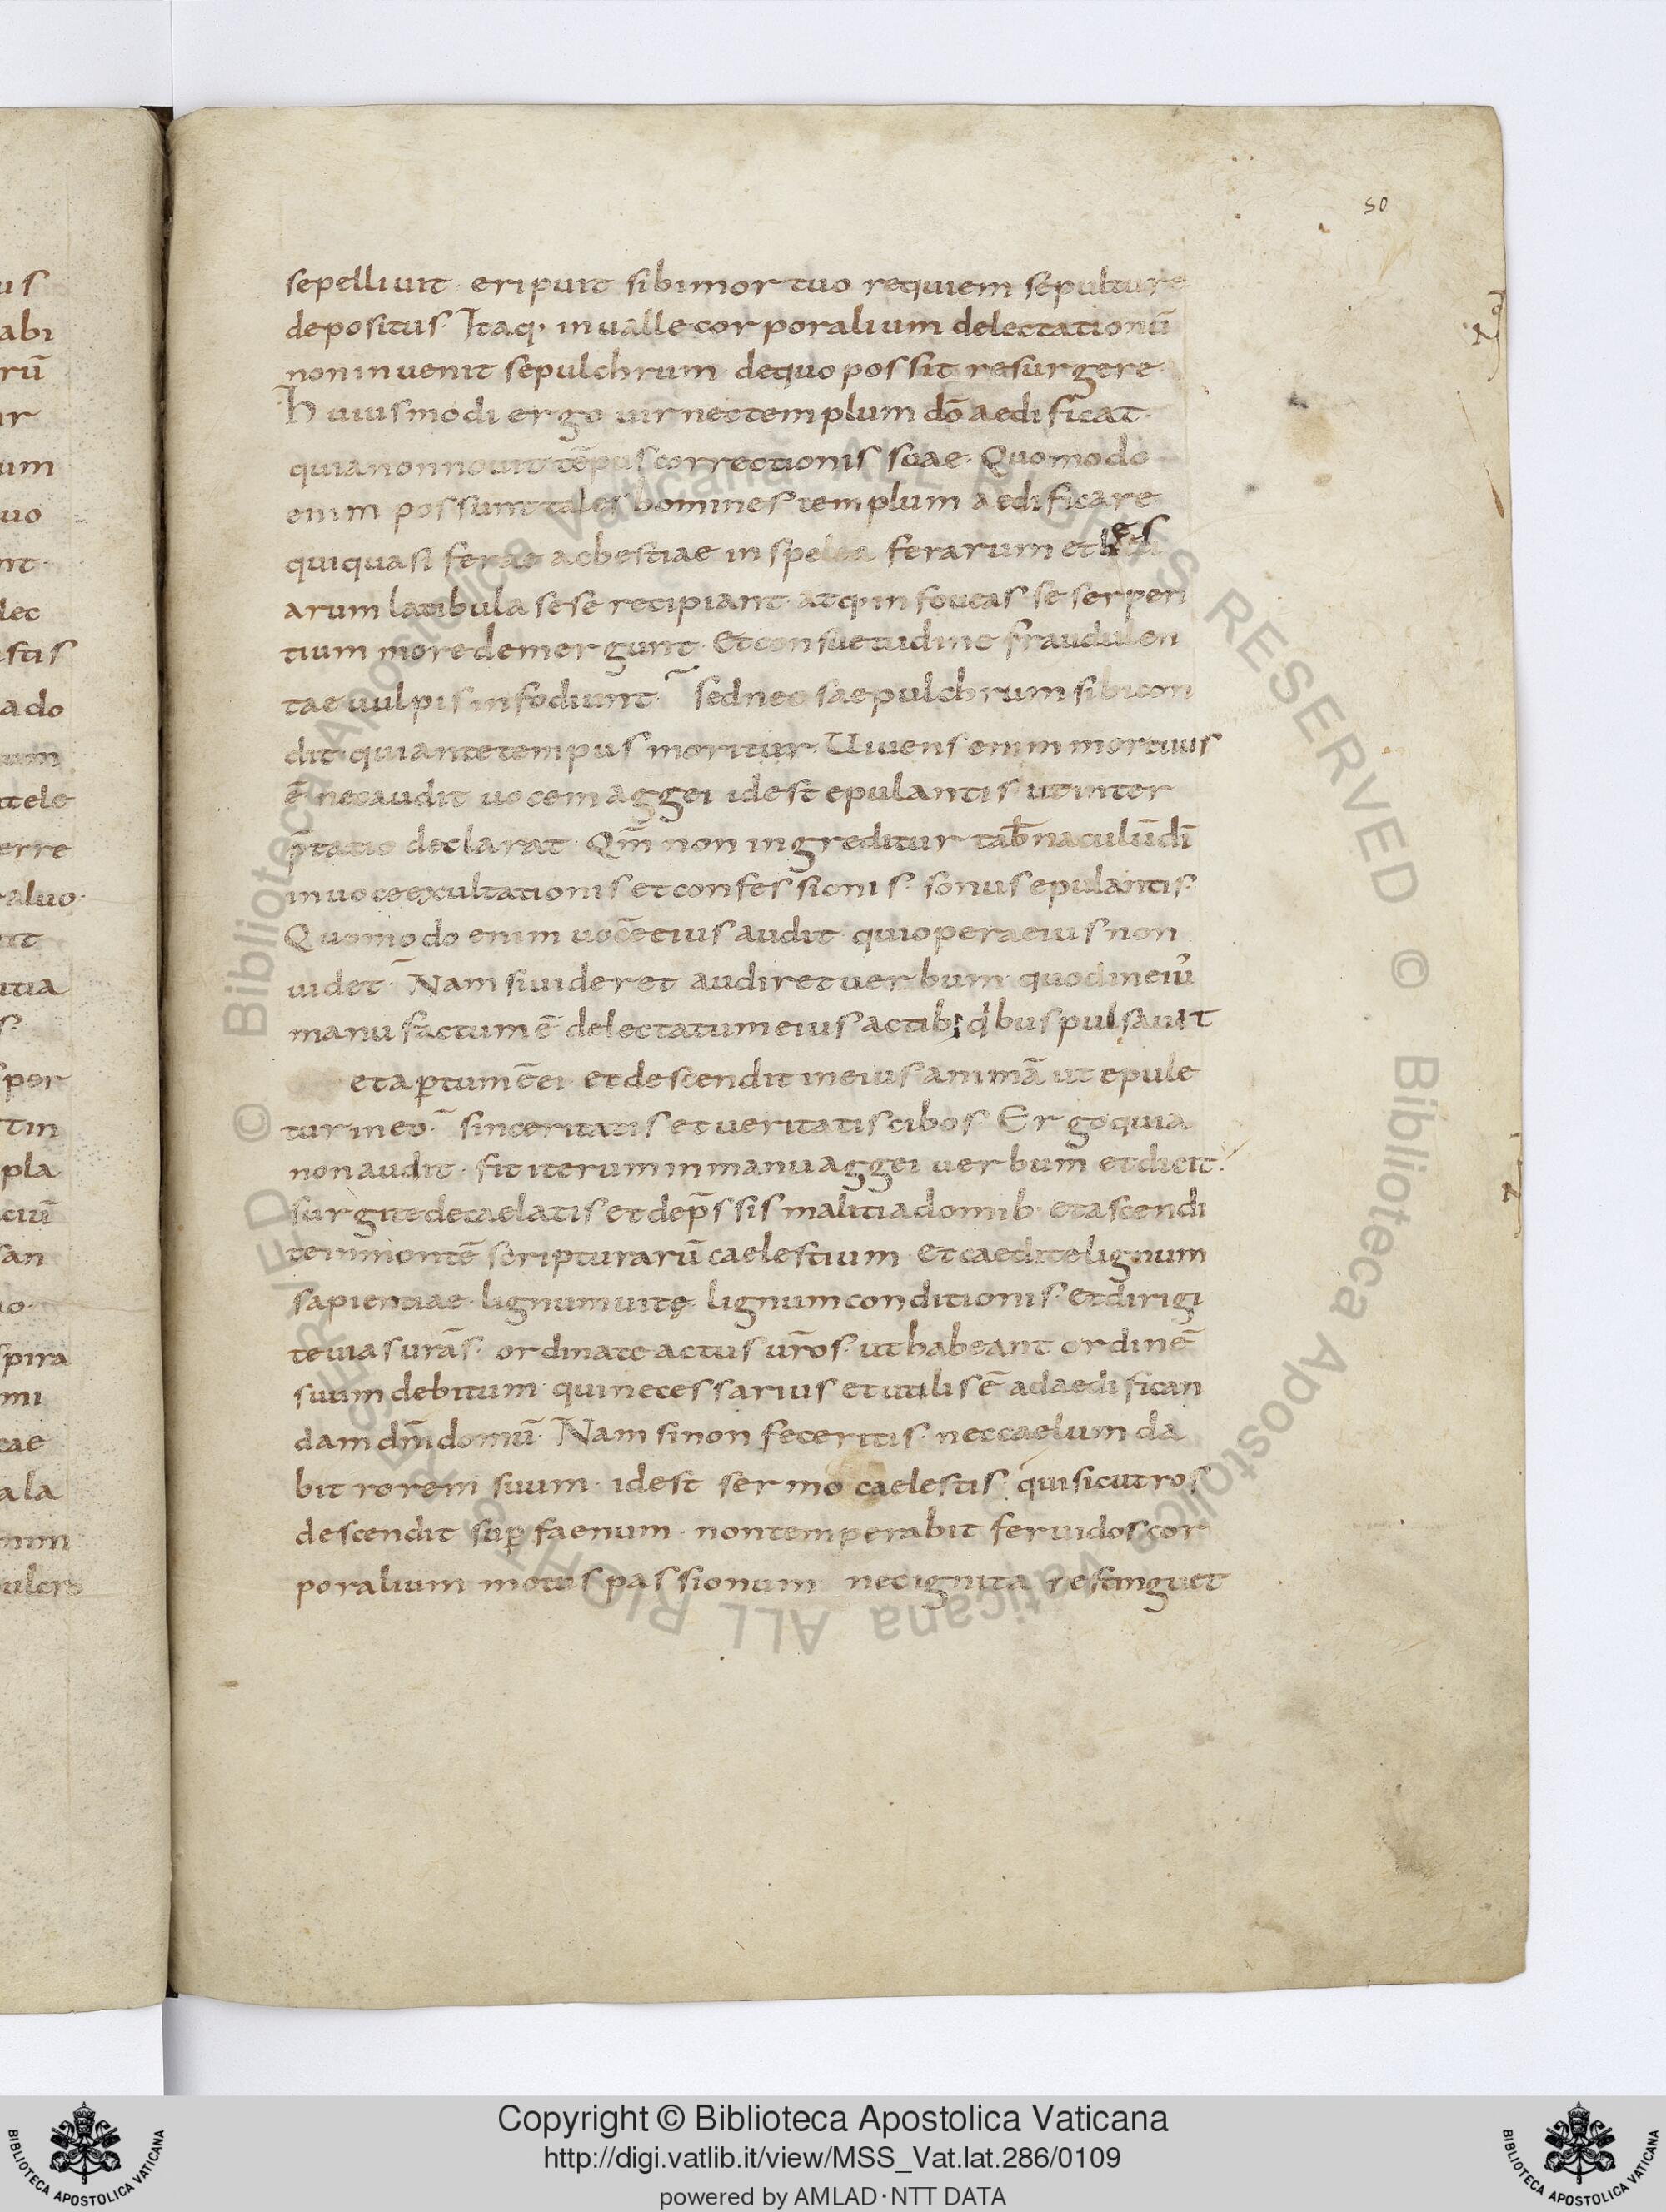 50
sepelliuit · eripuit sibi mortuo requiem sepulture
depositus · Itaq· in ualle corporalium delectationū
non inuenit sepulchrum · de quo possit resurgere ·
Huiusmodi ergo uir nec templum dō aedificat ·
quia non nouit tēpus correctionis suae · Quomodo
enim possunt tales homines templum aedificare
qui quasi ferae ac bestiae in spelea ferarum et
arum latibula sese recipiant · atq· in foueas se serpen
tium more demergunt · Et consuetudine fraudulen
tae uulpis infodiunt · sed nec saepulchrum sibi con
dit qui ante tempus moritur · Uiuens enim mortuus
ē nec audit uocem aggei id est epulantis ut inter
p̄tatio declarat · Qm̄ non ingreditur tab̄naculū dī
in uoce exultationis et confessionis · sonus epulantis ·
Quomodo enim uocē eius audit · qui opera eius non
uidet · Nam si uideret audiret uerbum · quod in eiu᾽
manu factum ē delectatum eius actib; qibus pulsauit
et aptum ē ei · et descendit in eius animā ut epule
tur in eo · sinceritatis et ueritatis cibos · Ergo quia
non audit · fit iterum in manu aggei uerbum et dicit ·
surgite de caelatis et dep̄ssis malitia domib · et ascendi
te in montē scripturarū caelestium · et caedite lignum
sapientiae · lignum uitę · lignum conditionis · et dirigi
te uias urās · ordinate actus ur̄os · ut habeant ordinē
suum debitum · qui necessarius et utilis ē ad aedifican
dam dm̄ domū · Nam si non feceritis · nec caelum da
bit rorem suum · id est sermo caelestis · qui sicut ros
descendit sup faenum · non temperabit feruidos cor
poralium motus passionum nec ignita restinguet
us
abi
rū
um
uo
nt·
lec
stis
ado
tele
erre
aluo·
utia
spor
tin
pla
ciū
san
spira
mi
cae
ala
© Biblioteca Apostolica Vaticana ALL RIGHTS RESERVED © Biblioteca Apostolica Vaticana ALL RIGHTS RESERVED
Copyright © Biblioteca Apostolica Vaticana
http://digi.vatlib.it/view/MSS_Vat.lat.286/0109
powered by AMLAD·NTT DATA
BIBLIOTECA APOSTOLICA VATICANA
BIBLIOTECA APOSTOLICA VATICANA